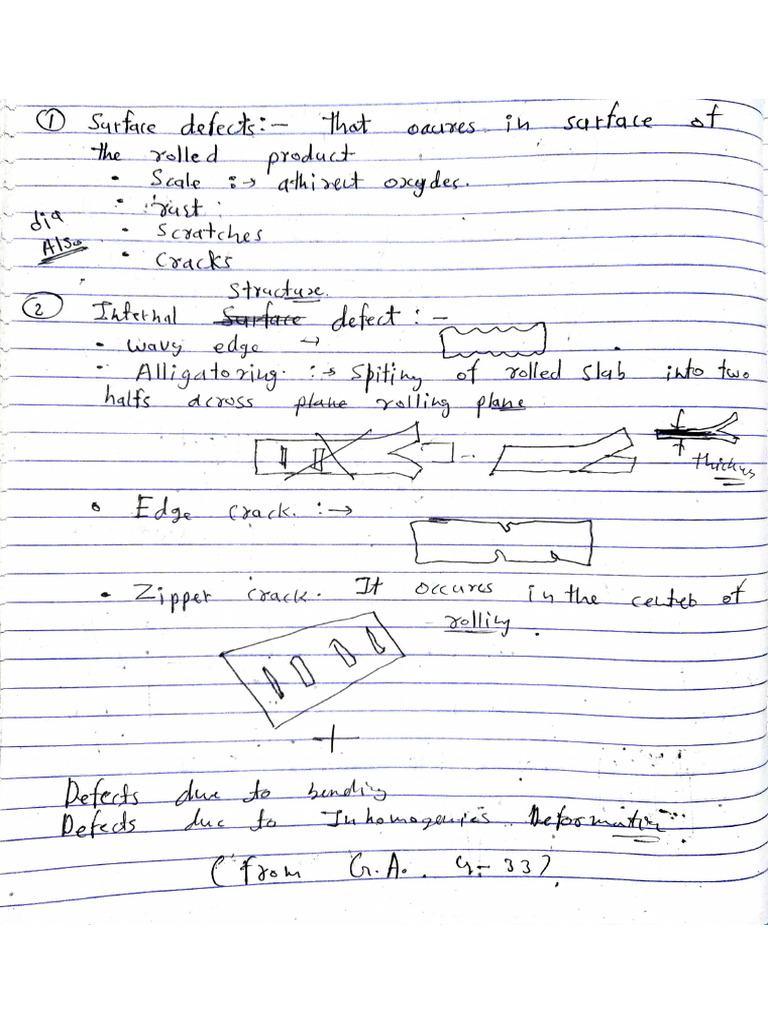 ① Surface defects:- That occures in surface of
the rolled product
• Scale :→ athirect oxydes.
• rust
dia Also
• Scratches
• Cracks
Structure.
② Internal Surface defect :-
• Wavy edge →
• Alligatoring :→ Spiting of rolled slab into two
halfs across plane rolling plane
thicknes
• Edge crack. :→
• Zipper crack. It occures in the center of
rolling.
Defects due to bending
Defects due to Inhomogenies Deformation
(from G.A. 9-33)